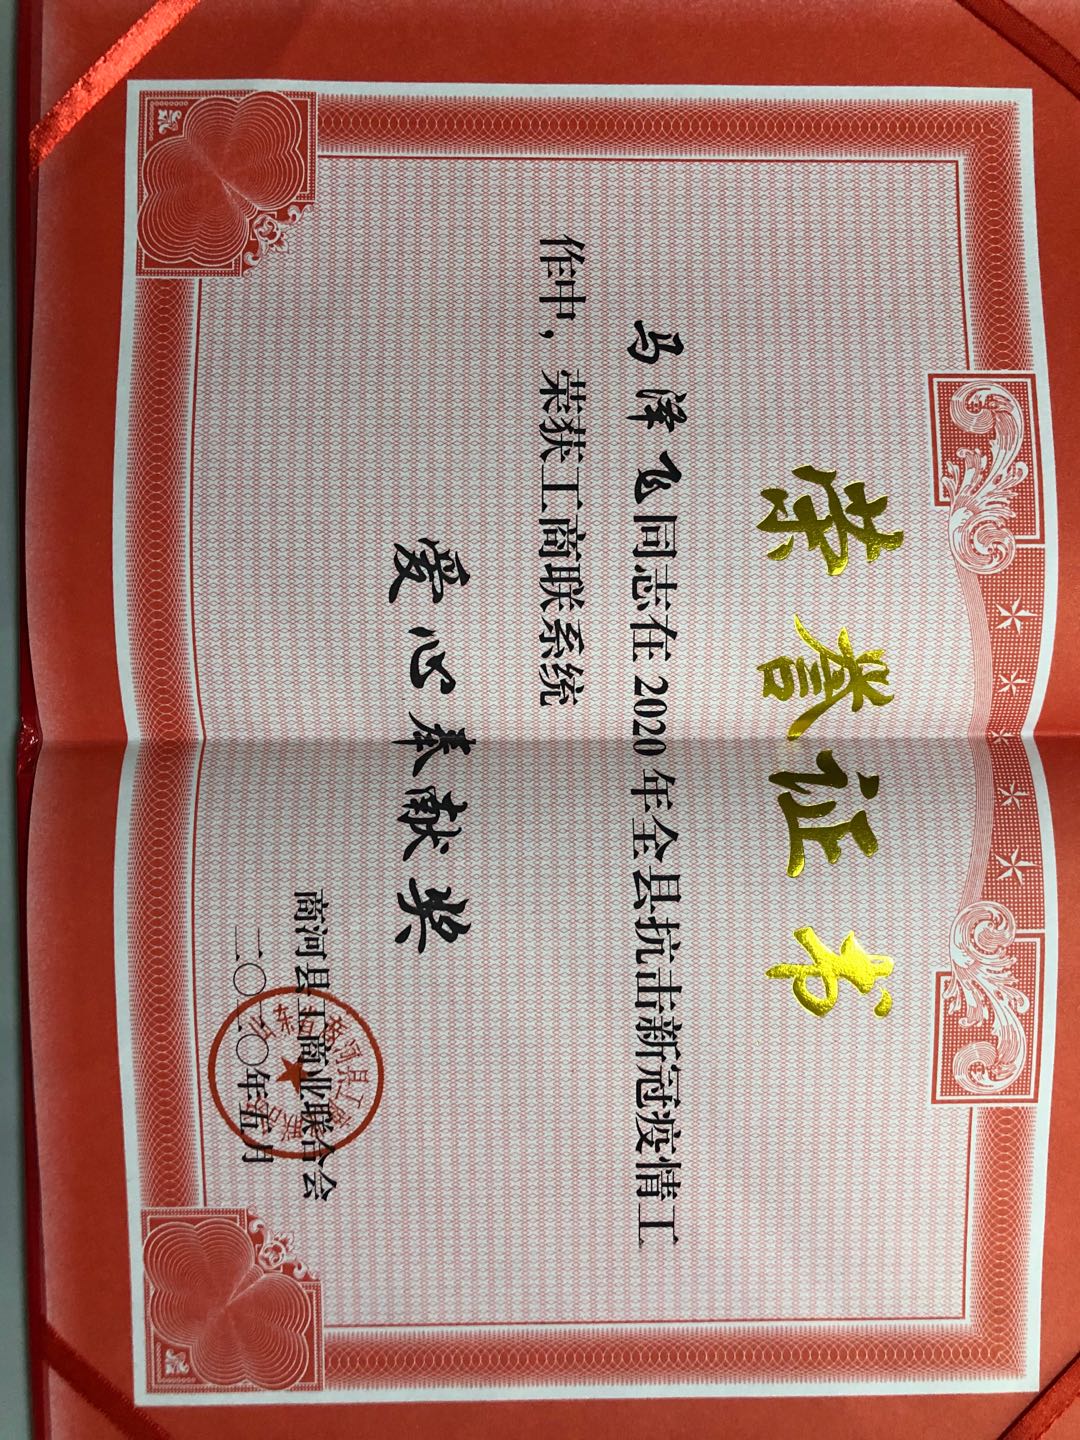 荣誉证书
马泽飞同志在2020年全县抗击新冠疫情工
作中，荣获工商联系统
爱心奉献奖
商河县工商业联合会
二〇二〇年五月